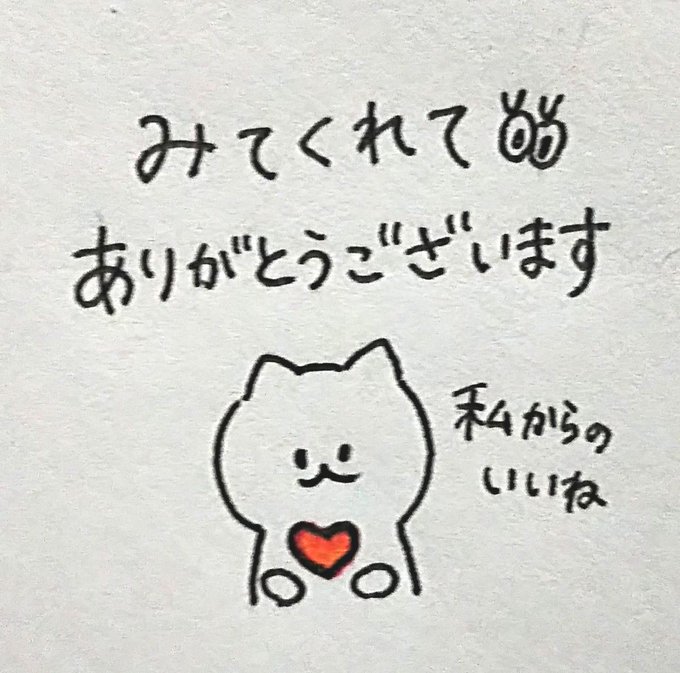 みてくれて
ありがとうございます
私からの
いいね